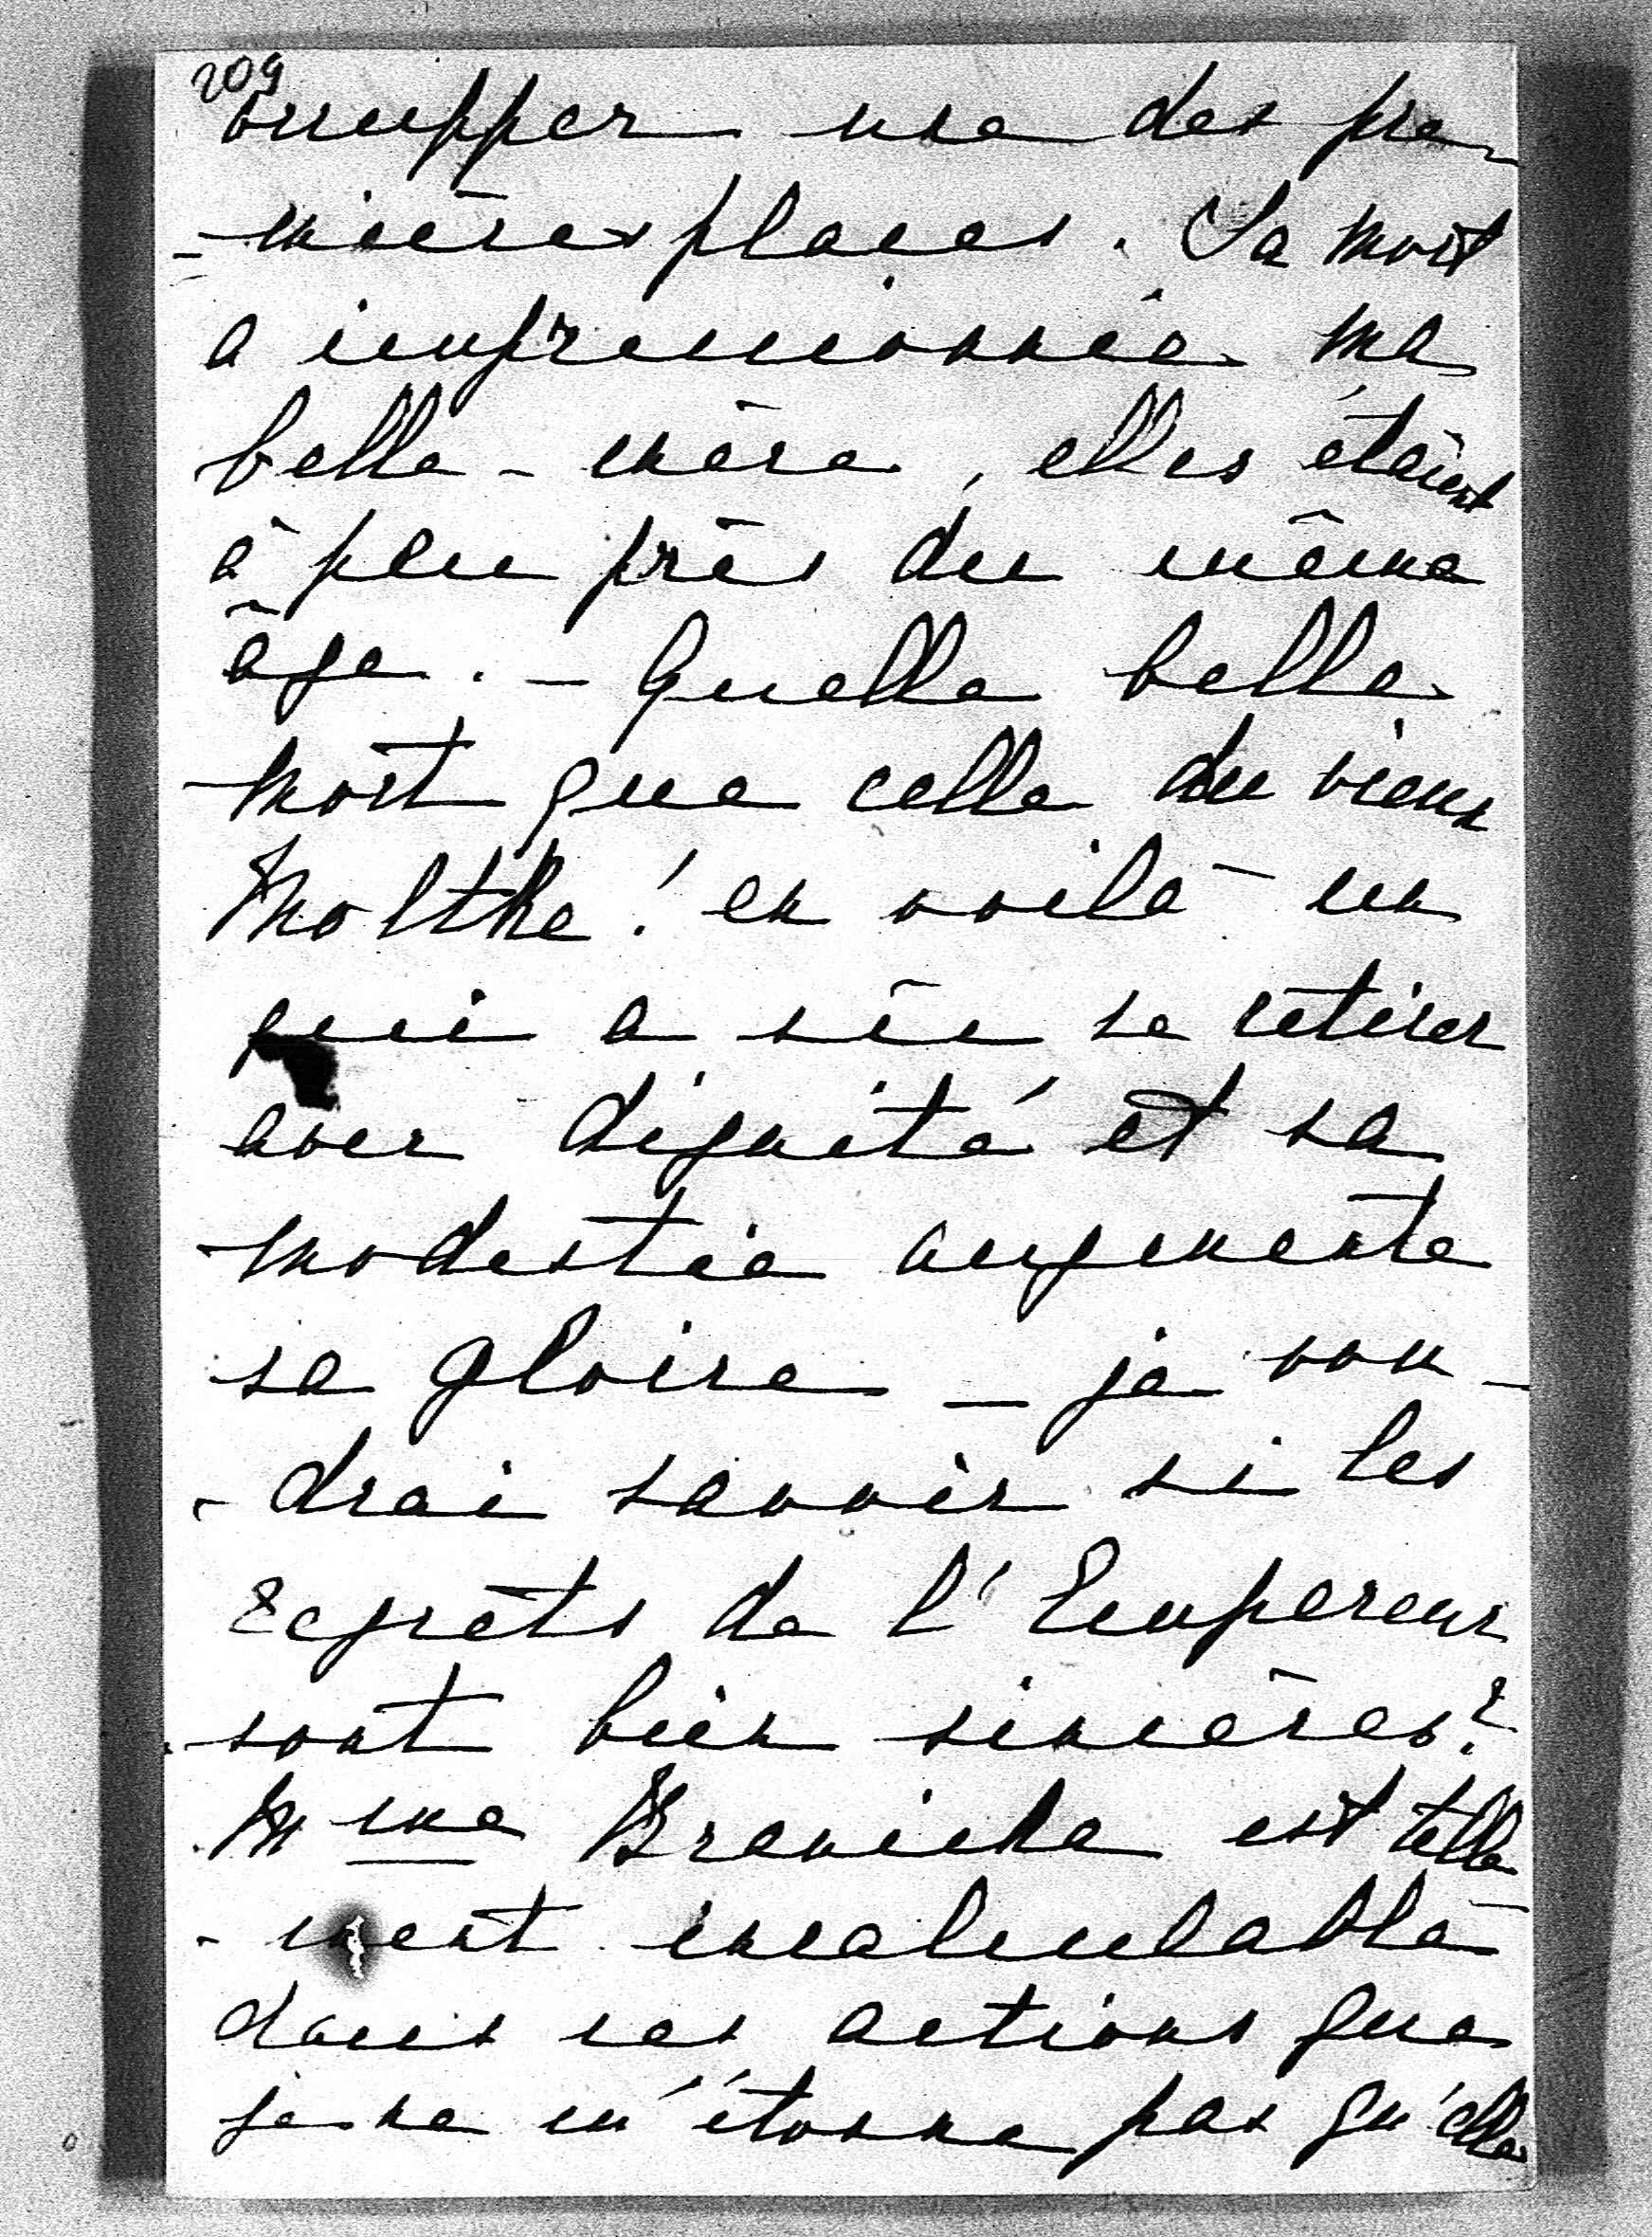 209
occupper une des pre-
-mières places. Sa mort
a impressionnée ma
belle-mère, elles étaient
à peu près du même
âge. - Quelle belle
mort que celle du vieux
Molthe! en voilà un
qui a sû se retirer
avec dignité et sa
modestie augmente
sa gloire - je vou-
-drai savoir si les
regrèts de l'Empereur
sont bien sincères?
Mme Branicka est telle
-ment incalculable
dans ses actions que
je ne m'étonne pas qu'elle